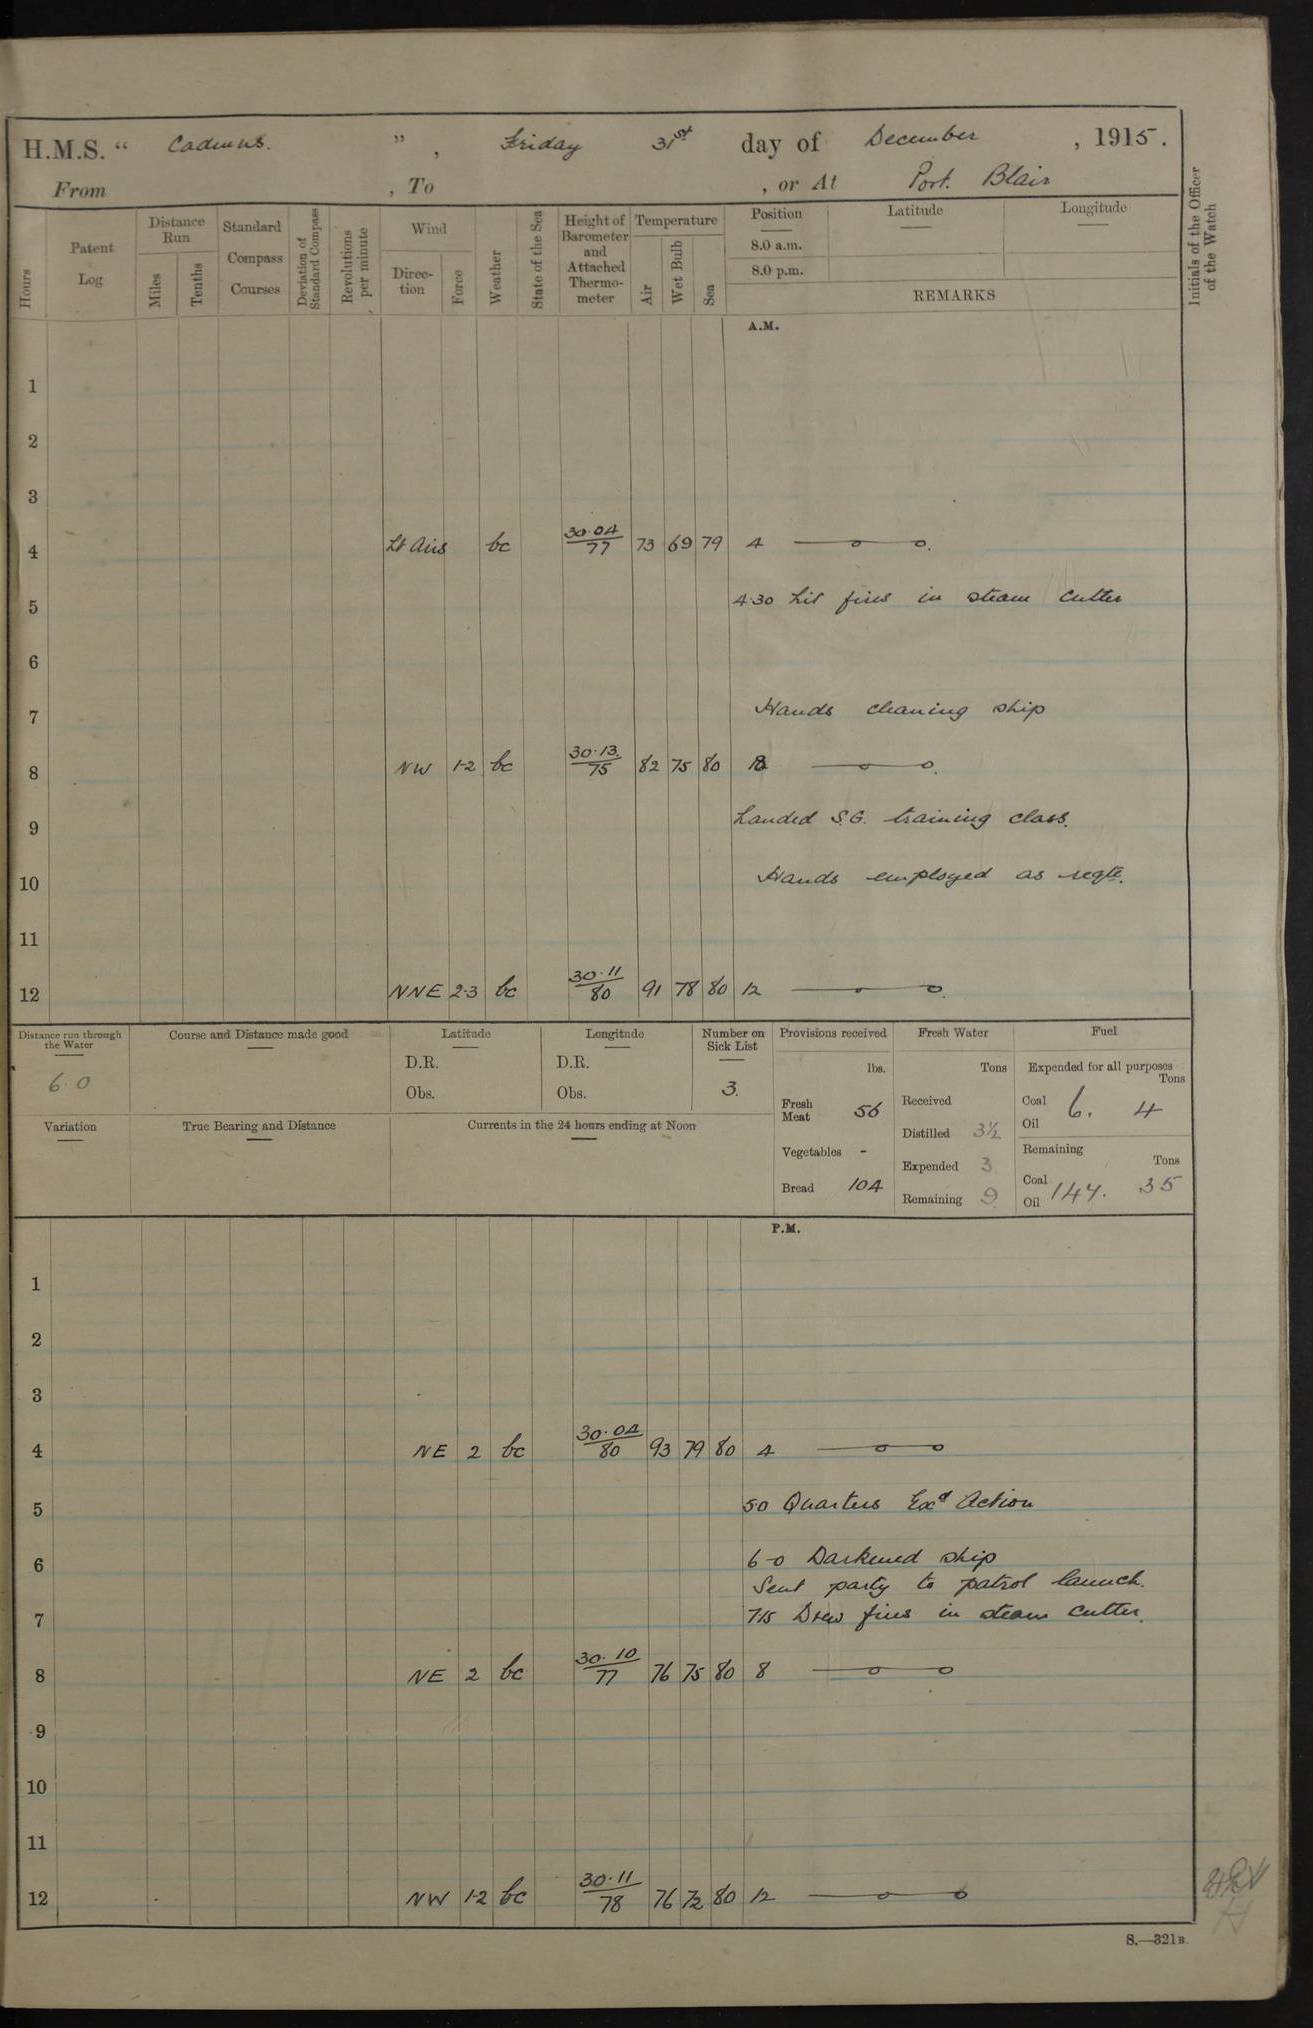 H.M.S. “ Cadmus. ” , Friday 31st day of December , 1915.
From , To , or At Port Blair
Hours
Patent Log
Distance Run
Miles
Tenths
Standard Compass Courses
Deviation of Standard Compass
Revolutions per minute
Wind
Direction
Force
Weather
State of the Sea
Height of Barometer and Attached Thermometer
Temperature
Air
Wet Bulb
Sea
Position
8.0 a.m.
8.0 p.m.
Latitude
Longitude
REMARKS
Initials of the Officer of the Watch
A.M.
1
2
3
4 Lt Airs bc 30.04/77 73 69 79 4
5 4.30 Lit fires in steam cutter
6
7 Hands cleaning ship
8 NW 1-2 bc 30.13/75 82 75 80 8
9 Landed S.G. training class.
10 Hands employed as reqte.
11
12 NNE 2-3 bc 30.11/80 91 78 80 12
Distance run through the Water
6.0
Course and Distance made good
Latitude
D.R.
Obs.
Longitude
D.R.
Obs.
Number on Sick List
3.
Variation
True Bearing and Distance
Currents in the 24 hours ending at Noon
Provisions received
lbs.
Fresh Meat 56
Vegetables -
Bread 104
Fresh Water
Tons
Received
Distilled 3½
Expended 3
Remaining 9
Fuel
Expended for all purposes
Tons
Coal
Oil
6. 4
Remaining
Tons
Coal
Oil
147. 35
P.M.
1
2
3
4 NE 2 bc 30.04/80 93 79 80 4
5 50 Quarters Exd Action
6 6-0 Darkened ship
Sent party to patrol launch.
7 715 Drew fires in steam cutter.
8 NE 2 bc 30.10/77 76 75 80 8
9
10
11
12 NW 1-2 bc 30.11/78 76 72 80 12
S.—321B.